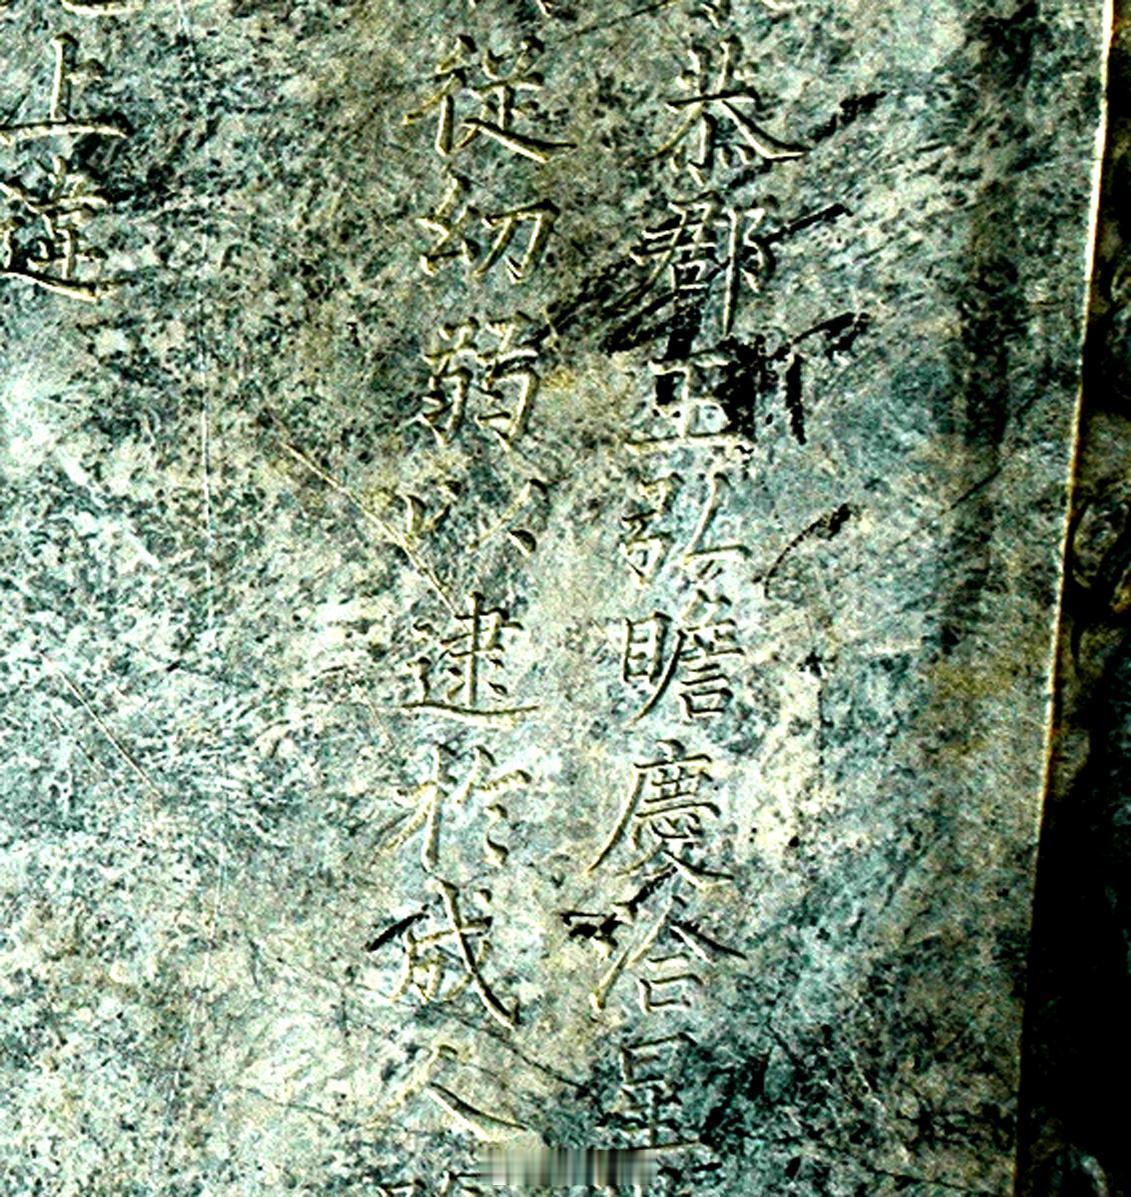 恭郡王弘瞻慶洽星
從幼弱以逮於成人
上遣